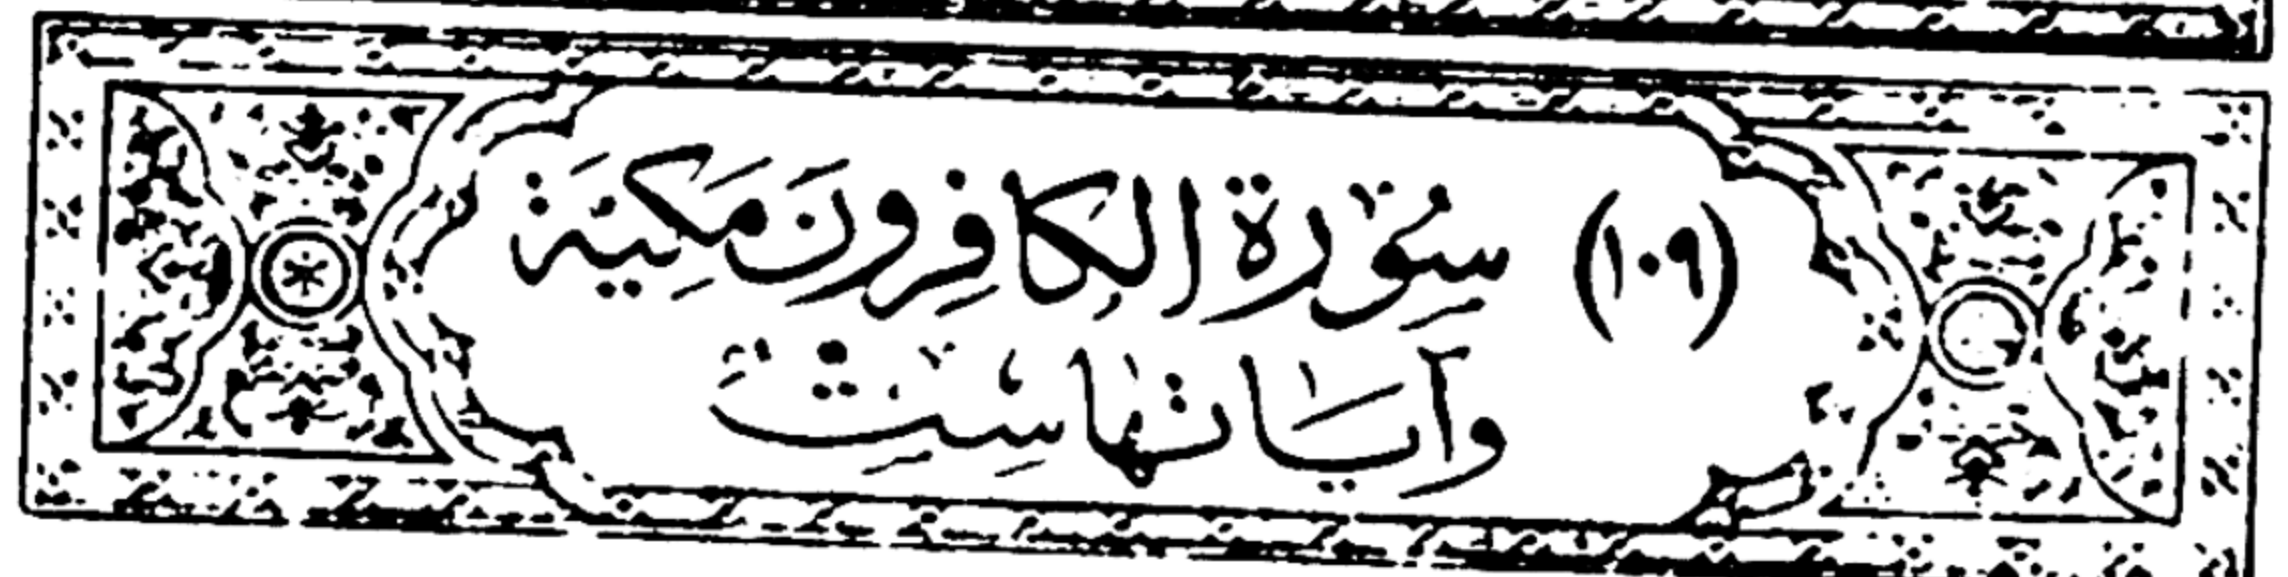 (١٠٩) سُوۡرَةُ الكَافِرُونَ مَكِيَّة
وَآيَاتُهَا سِتٌّ